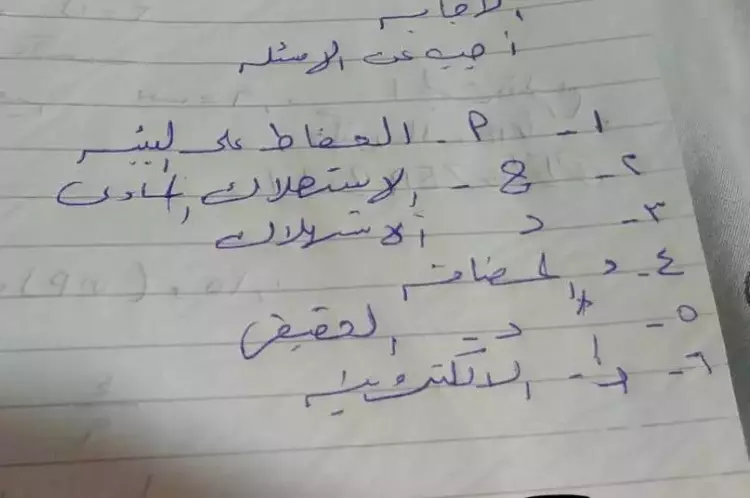 الاجابه
أجيب عن الاسئله
١- م - الحفاظ على البيئه
٢- ج - الاستهلاك المادى
٣- د الاستهلاك
٤- د المضافه
٥- د - الحقيقى
٦- أ - الالكترونيه